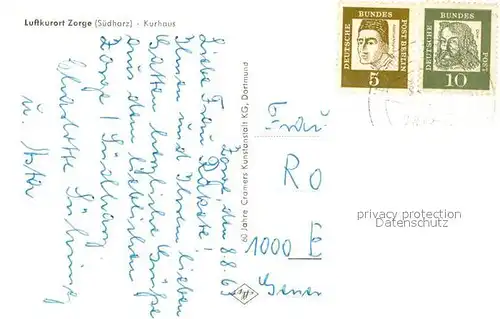 Luftkurort Zorge (Südharz) - Kurhaus
Zorge, den 8.8.63
Liebe Frau Rakete!
Ihnen und Ihrem lieben
Gatten herzliche Grüße
aus dem lieblichen
Zorge / Südharz
Charlotte
u.
60 Jahre Cramers Kunstanstalt KG, Dortmund
DEUTSCHE BUNDES POST BERLIN
5
DEUTSCHE BUNDES POST
10
Frau
RO
1000
Gener
privacy protection
Datenschutz